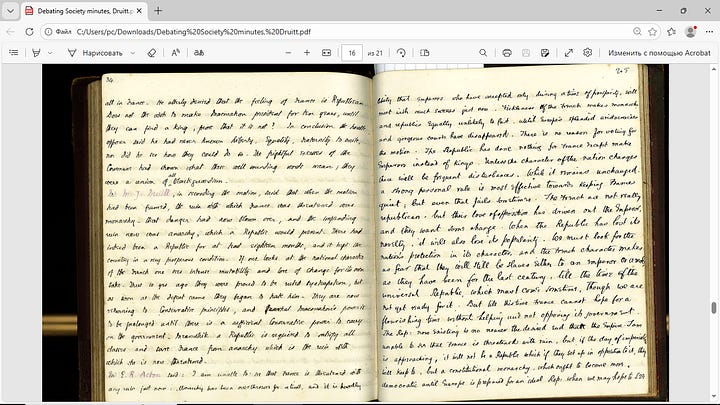 Debating Society minutes, Druitt.pdf
Файл
C:/Users/pc/Downloads/Debating%20Society%20minutes,%20Druitt.pdf
Нарисовать
16
из 21
Изменить с помощью Acrobat
34
all in France. He utterly denied that the feeling of France is Republican.
Does not the vote to make Macmahon president for ten years, until
they can find a king, prove that it is not? In conclusion the
opposer said he had never known Liberty, Equality, Fraternity to unite,
nor did he see how they could do so. The frightful excesses of the
Commune had shown what these well sounding words mean; they
were a union of all blackguardism.
Mr M. J. Druitt, in seconding the motion, said that when the motion
had been framed, the ruin with which France was threatened was
monarchy. that danger had now blown over, and the impending
ruin now was anarchy, which a Republic would prevent. There had
indeed been a Republic for at least eighteen months, and it kept the
country in a very prosperous condition. If one looks at the national character
of the French one sees intense mutability and love of change for its own
sake. Two or 3 years ago they were proud to be ruled by
as soon as the defeat came they began to hate him. They are now
returning to Conservative principles, and Macmahon's power is
to be prolonged until there is a sufficient Conservative power to carry
on the government; meanwhile a Republic is required to satisfy all
classes and save France from anarchy which is the ruin with
which she is now threatened.
Mr E. R. Acton said: I am unable to see that France is threatened with
any ruin just now. Monarchy has been overthrown for a time, and it is hardly
likely that Emperors who have accepted only during a time of prosperity, will
meet with much success just now. Fickleness of the French makes monarchy
and republic equally unlikely to last. until Europe's splendid
and gorgeous courts have disappeared. There is no reason for voting for
the motion. The Republic has done nothing for France except make
Emperors instead of Kings. Unless the character of the nation changes
there will be frequent disturbances. While it remains unchanged.
a strong personal rule is most effective towards keeping France
quiet; but even that fails sometimes. The French are not really
republican. but their love of opposition has driven out the Emperor,
and they want some change. When the Republic has lost its
novelty, it will also lose its popularity. We must look for the
nation's protection in its character, and the French character makes
us fear that they will still be slaves either to an Emperor or
as they have been for the last century, till the time of the
universal Republic, which must come sometime, though we are
not yet ready for it. But till this time France cannot hope for a
flourishing time without helping and not opposing its government.
The Rep: now existing is no nearer the desired end than the Empire. I am
unable to see that France is threatened with ruin, but if the day of
is approaching, it will not be a Republic which if they set up in opposition to it, they
will keep to, but a constitutional monarchy, which ought to become more
democratic until Europe is prepared for an ideal Rep. when we may hope to see